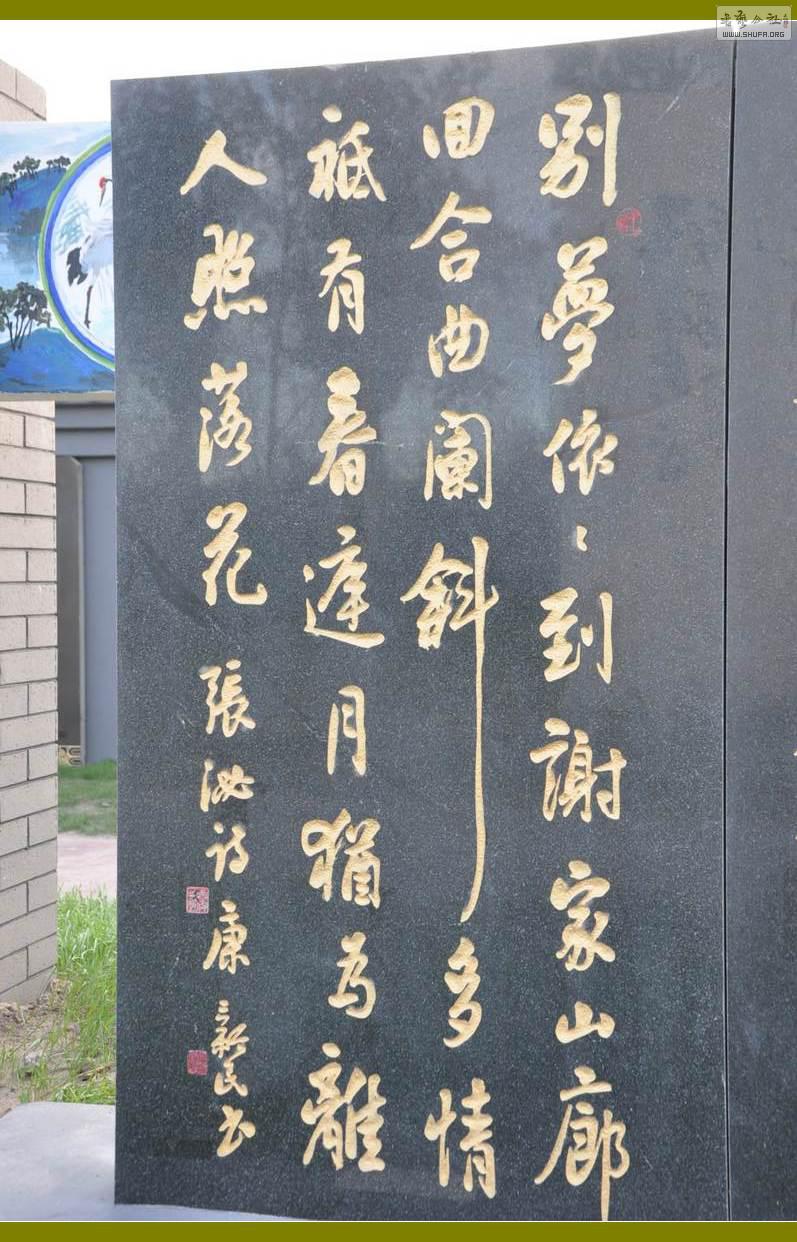 別夢依〻到謝家山廊
回合曲闌斜多情
祗有春庭月猶為離
人照落花 張泌詩 康新民书
WWW.SHUFA.ORG